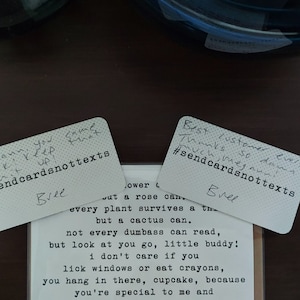 you came
that
keep
it up!
sendcardsnottexts
Bree
Best customer ever
Thanks so damn
much
#sendcardsnottexts
Bree
lower
but a rose can.
every plant survives a th
but a cactus can.
not every dumbass can read,
but look at you go, little buddy!
i don't care if you
lick windows or eat crayons,
you hang in there, cupcake, because
you're special to me and